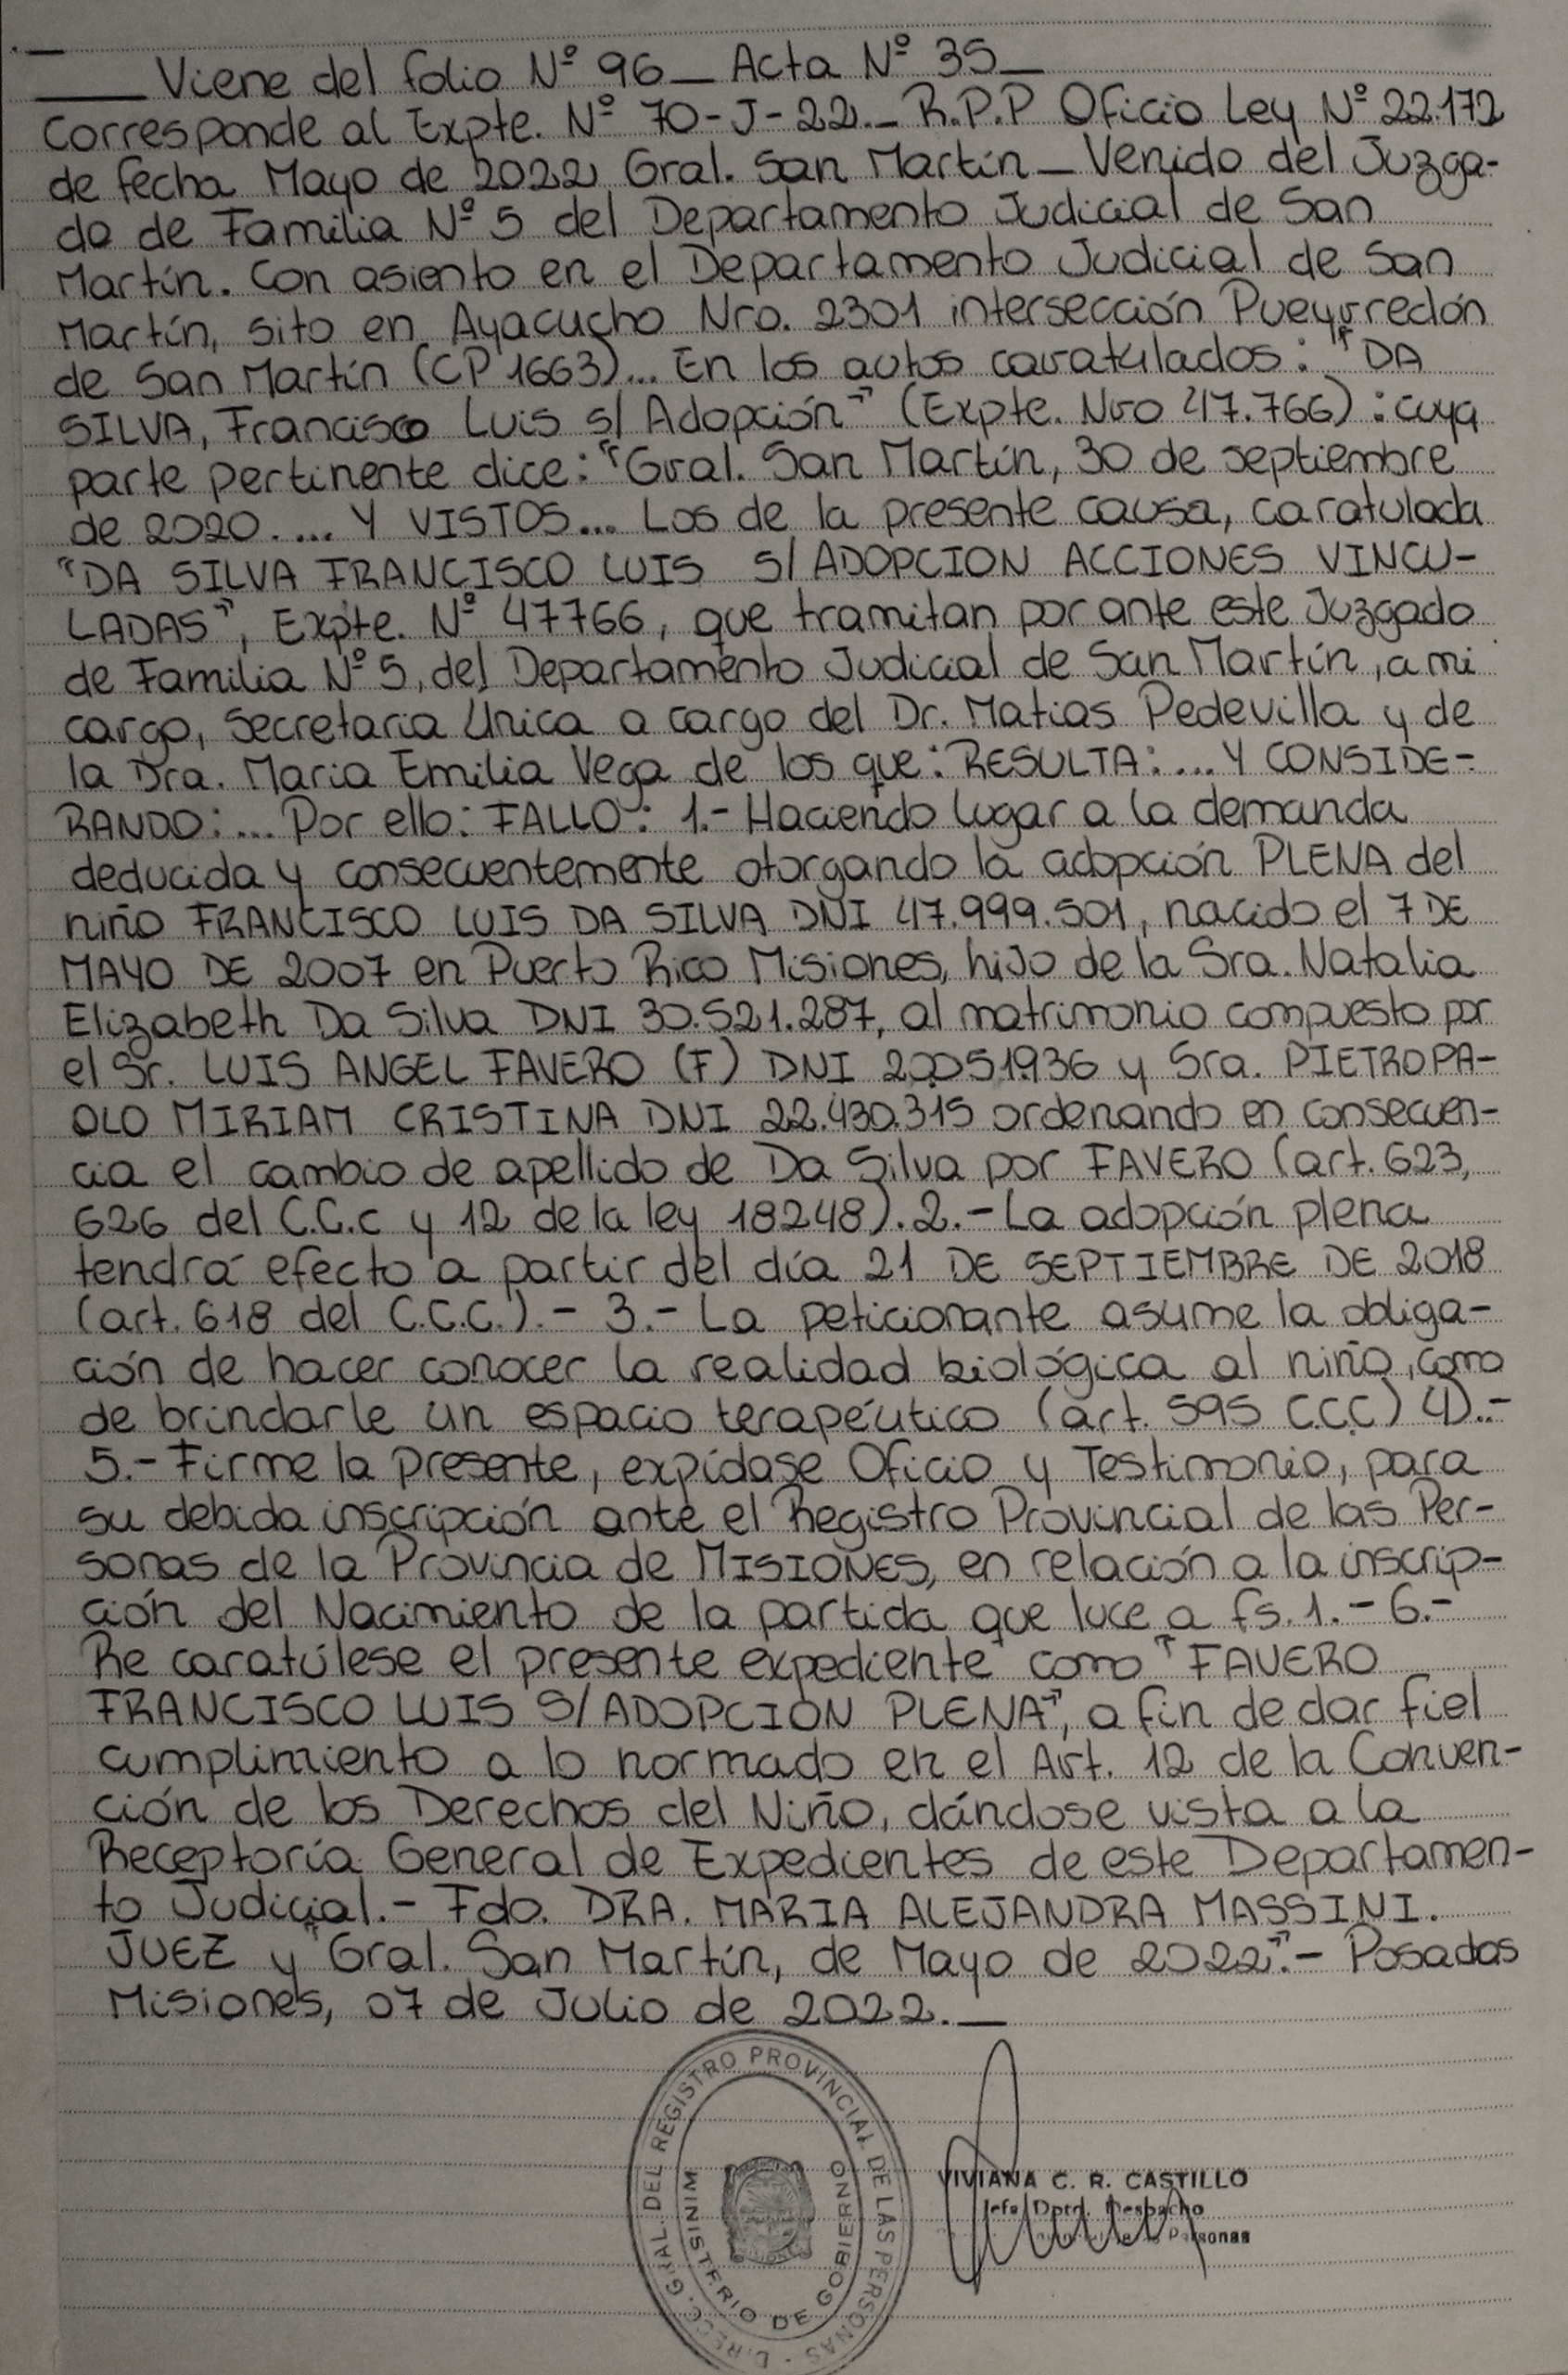 Viene del folio Nº 96_ Acta Nº 35_
Corresponde al Expte. Nº 70-J-22._ R.P.P Oficio Ley Nº 22.172
de fecha Mayo de 2022 Gral. San Martín_ Venido del Juzga-
do de Familia Nº 5 del Departamento Judicial de San
Martín. Con asiento en el Departamento Judicial de San
Martín, sito en Ayacucho Nro. 2301 intersección Pueyrredón
de San Martín (CP 1663)... En los autos caratulados: "DA
SILVA, Francisco Luis s/ Adopción" (Expte. Nro 47.766): cuya
parte pertinente dice: "Gral. San Martín, 30 de septiembre
de 2020. ... Y VISTOS... Los de la presente causa, caratulada
"DA SILVA FRANCISCO LUIS S/ ADOPCION ACCIONES VINCU-
LADAS", Expte. Nº 47766, que tramitan por ante este Juzgado
de Familia Nº 5, del Departamento Judicial de San Martín, a mi
cargo, Secretaria Unica a cargo del Dr. Matias Pedevilla y de
la Dra. Maria Emilia Vega de los que: RESULTA: ... Y CONSIDE-
RANDO: ... Por ello: FALLO: 1.- Haciendo lugar a la demanda
deducida y consecuentemente otorgando la adopción PLENA del
niño FRANCISCO LUIS DA SILVA DNI 47.999.501, nacido el 7 DE
MAYO DE 2007 en Puerto Rico Misiones, hijo de la Sra. Natalia
Elizabeth Da Silva DNI 30.521.287, al matrimonio compuesto por
el Sr. LUIS ANGEL FAVERO (F) DNI 20.051.936 y Sra. PIETROPA-
OLO MIRIAM CRISTINA DNI 22.430.315 ordenando en consecuen-
cia el cambio de apellido de Da Silva por FAVERO (art. 623,
626 del C.C.C y 12 de la ley 18248). 2.- La adopción plena
tendrá efecto a partir del día 21 DE SEPTIEMBRE DE 2018
(art. 618 del C.C.C.).- 3.- La peticionante asume la obliga-
ción de hacer conocer la realidad biológica al niño, como
de brindarle un espacio terapéutico (art. 595 C.C.C) 4).-
5.- Firme la presente, expídase Oficio y Testimonio, para
su debida inscripción ante el Registro Provincial de las Per-
sonas de la Provincia de MISIONES, en relación a la inscrip-
ción del Nacimiento de la partida que luce a fs. 1.- 6.-
Re caratúlese el presente expediente como "FAVERO
FRANCISCO LUIS S/ ADOPCION PLENA", a fin de dar fiel
cumplimiento a lo normado en el Art. 12 de la Conven-
ción de los Derechos del Niño, dándose vista a la
Receptoría General de Expedientes de este Departamen-
to Judicial.- Fdo. DRA. MARIA ALEJANDRA MASSINI.
JUEZ y "Gral. San Martín, de Mayo de 2022".- Posadas
Misiones, 07 de Julio de 2022._
DIRECC. GRAL. DEL REGISTRO PROVINCIAL DE LAS PERSONAS
MINISTERIO DE GOBIERNO
VIVIANA C. R. CASTILLO
Jefa Dpto. Despacho
Personas